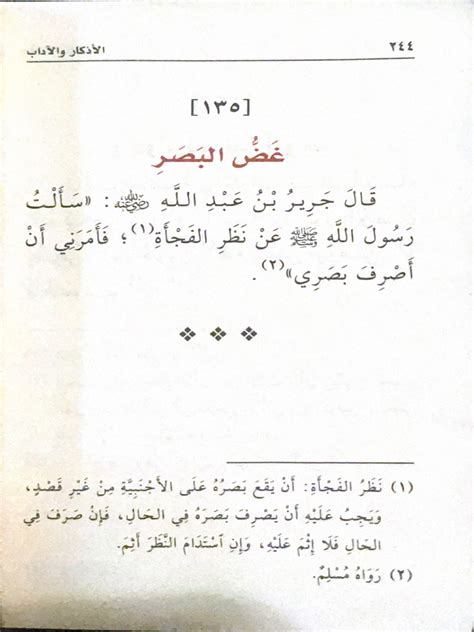 ٢٤٤ الأذكار والآداب
[١٣٥]
غَضُّ البَصَرِ
قَالَ جَرِيرُ بْنُ عَبْدِ اللَّهِ رَضِيَ اللَّهُ عَنْهُ: «سَأَلْتُ
رَسُولَ اللَّهِ ﷺ عَنْ نَظَرِ الفَجْأَةِ(١)؛ فَأَمَرَنِي أَنْ
أَصْرِفَ بَصَرِي»(٢).
(١) نَظَرُ الفَجْأَةِ: أَنْ يَقَعَ بَصَرُهُ عَلَى الأَجْنَبِيَّةِ مِنْ غَيْرِ قَصْدٍ،
وَيَجِبُ عَلَيْهِ أَنْ يَصْرِفَ بَصَرَهُ فِي الحَالِ، فَإِنْ صَرَفَ فِي
الحَالِ فَلَا إِثْمَ عَلَيْهِ، وَإِنِ ٱسْتَدَامَ النَّظَرَ أَثِمَ.
(٢) رَوَاهُ مُسْلِمٌ.